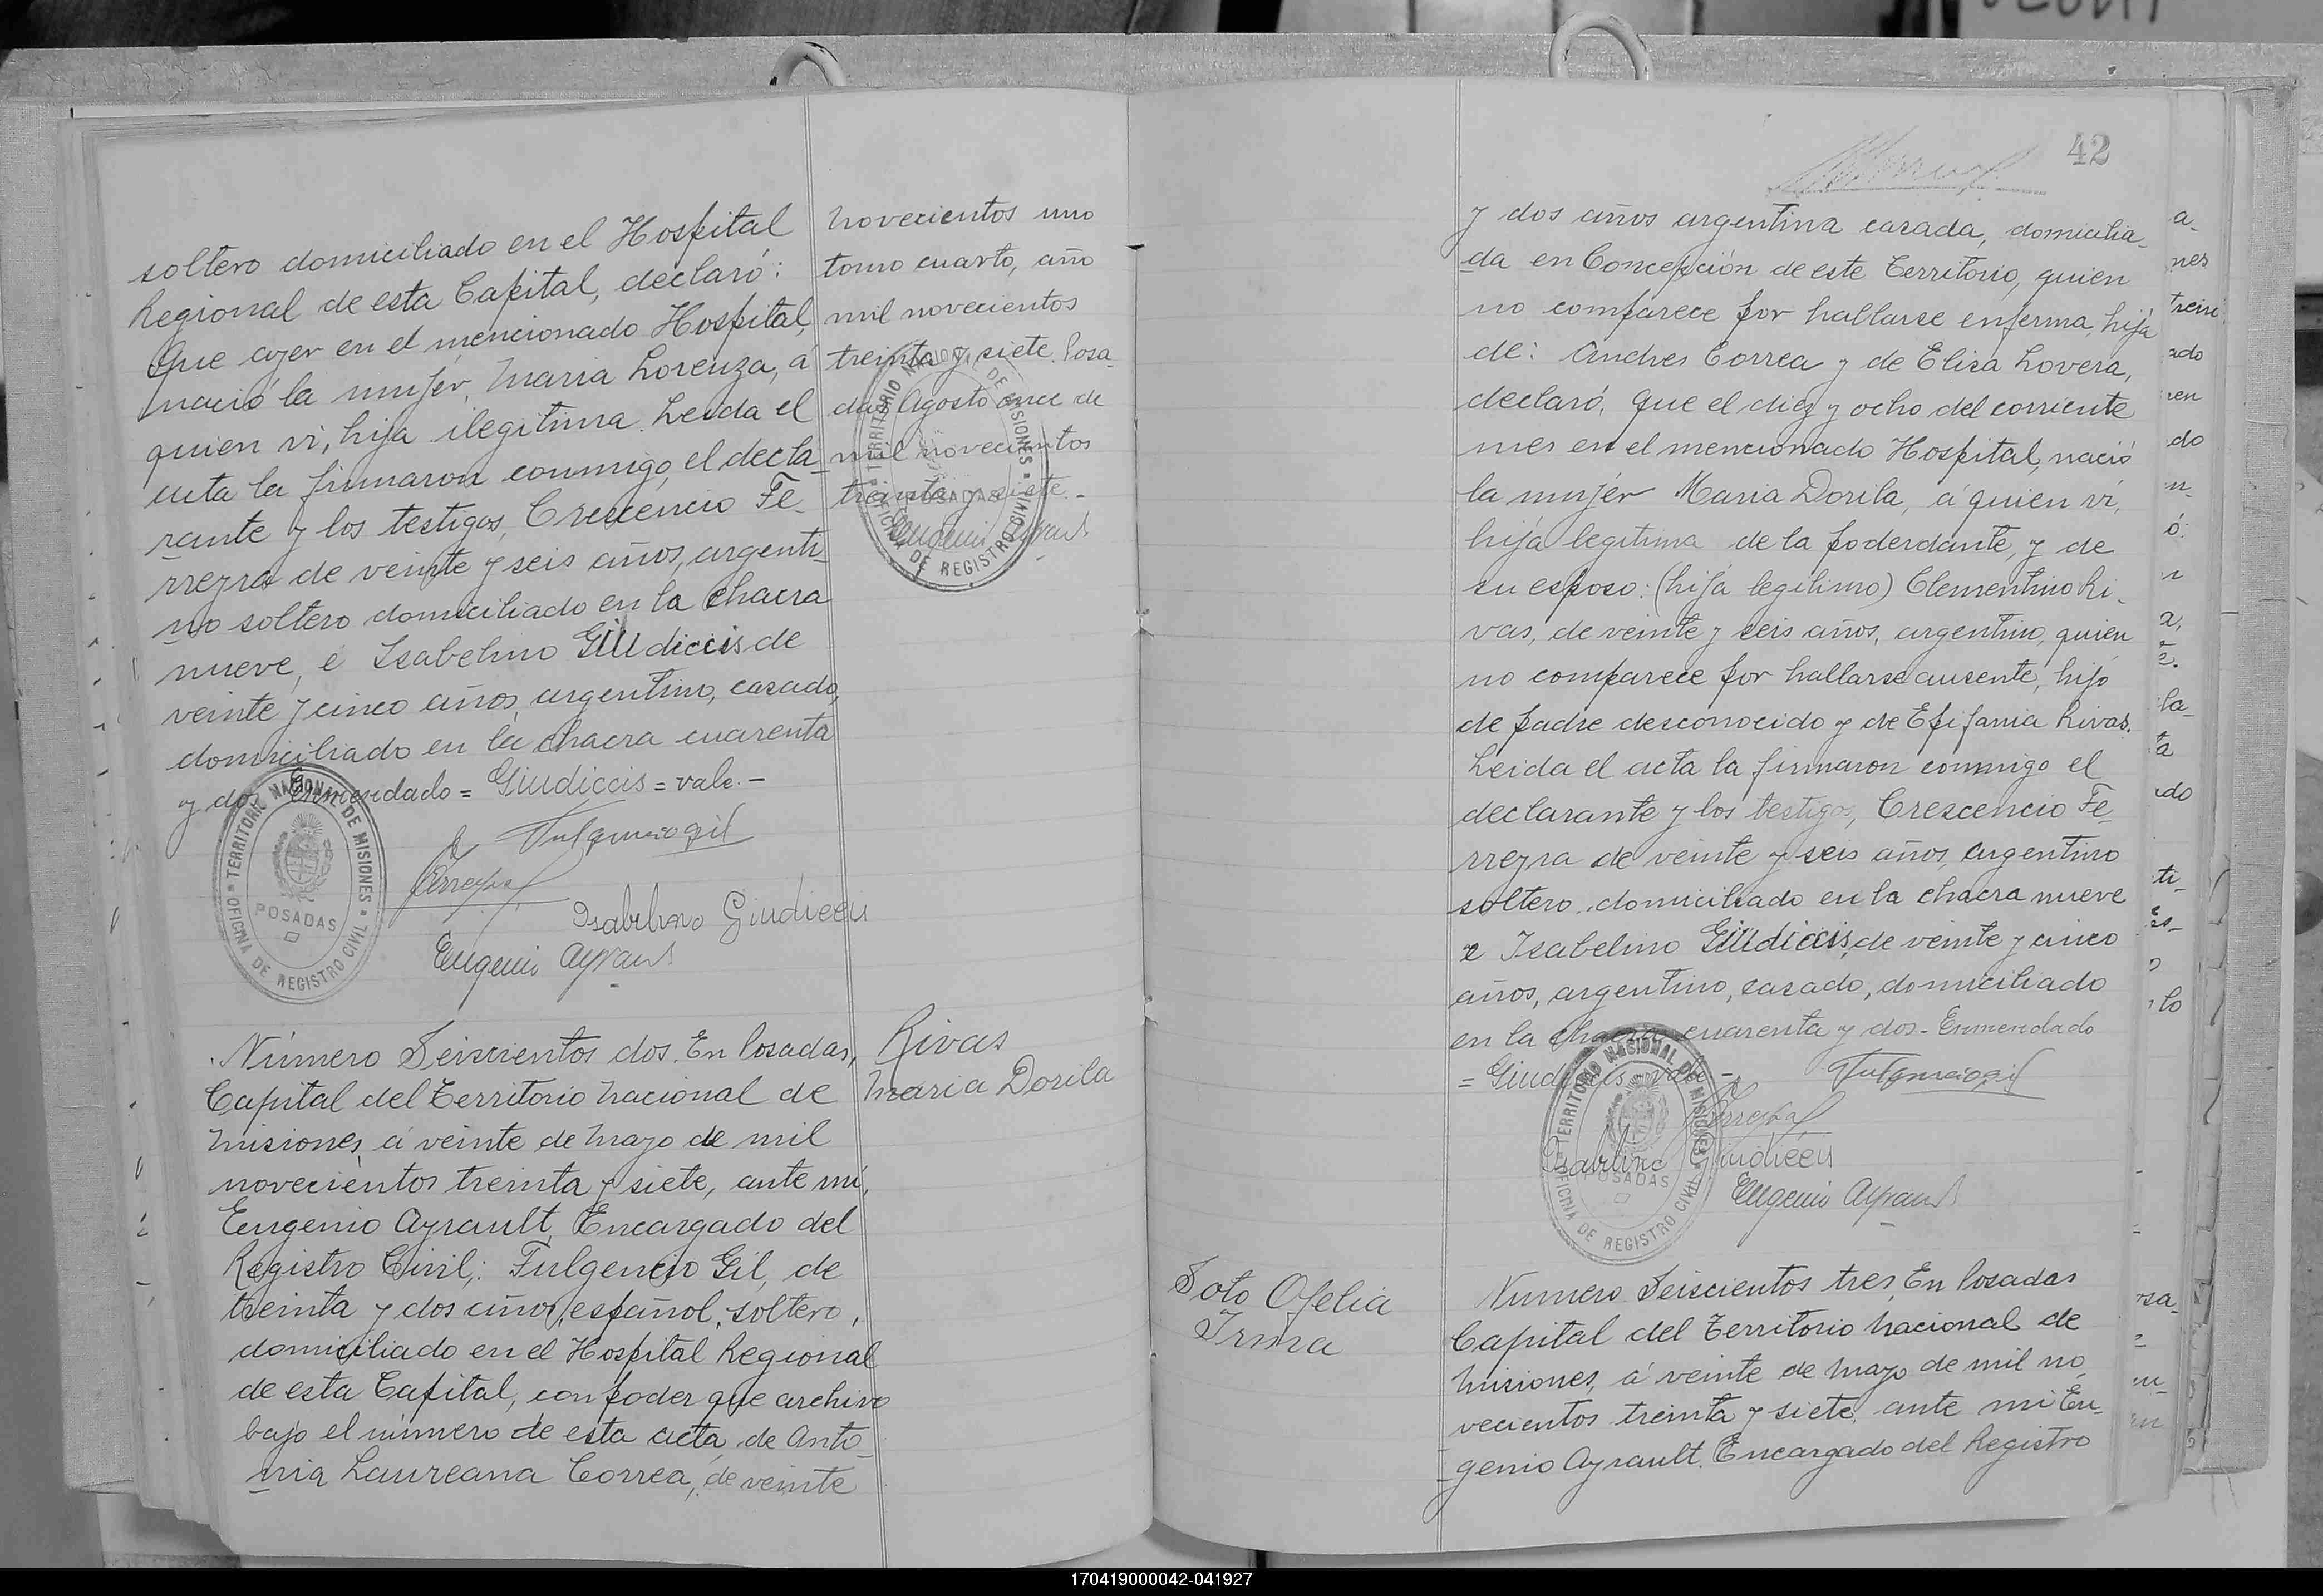 soltero domiciliado en el Hospital
Regional de esta Capital, declaró:
Que ayer en el mencionado Hospital,
nació la mujer, Maria Lorenza, á
quien vi, hija ilegitima. Leida el
acta la firmaron conmigo, el decla_
rante y los testigos, Crescencio Fe_
rreyra de veinte y seis años, argenti_
no soltero domiciliado en la chacra
nueve, é Isabelino Giudiccis de
veinte y cinco años, argentino, casado,
domiciliado en la chacra cuarenta
y dos Enmendado = Giudiccis = vale.-
Fulgencio Gil
Ferreyra
Isabelino Giudiccis
Eugenio Ayrault
TERRITORIO NACIONAL DE MISIONES
POSADAS
OFICINA DE REGISTRO CIVIL
novecientos uno
tomo cuarto, año
mil novecientos
treinta y siete. Posa_
das Agosto once de
mil novecientos
treinta y siete.-
Eugenio Ayrault
TERRITORIO NACIONAL DE MISIONES
POSADAS
OFICINA DE REGISTRO CIVIL
Rivas
Maria Dorila
Número Seiscientos dos. En Posadas,
Capital del Territorio Nacional de
Misiones, á veinte de Mayo de mil
novecientos treinta y siete, ante mí,
Eugenio Ayrault, Encargado del
Registro Civil,: Fulgencio Gil, de
treinta y dos años, español, soltero,
domiciliado en el Hospital Regional
de esta Capital, con poder que archivo
bajo el número de esta acta, de Anto_
nia Laureana Correa, de veinte
42
y dos años argentina casada, domicilia_
da en Concepción de este Territorio, quien
no comparece por hallarse enferma, hija
de: Andres Correa y de Elisa Lovera,
declaró, Que el diez y ocho del corriente
mes en el mencionado Hospital, nació
la mujer Maria Dorila, á quien ví,
hija legitima de la poderdante, y de
su esposo: (hija legitimo) Clementino Ri_
vas, de veinte y seis años, argentino, quien
no comparece por hallarse ausente, hijo
de padre desconocido y de Epifania Rivas.
Leida el acta la firmaron conmigo el
declarante y los testigos, Crescencio Fe_
rreyra de veinte y seis años, argentino
soltero domiciliado en la chacra nueve
e Isabelino Giudiccis, de veinte y cinco
años, argentino, casado, domiciliado
en la chacra cuarenta y dos - Enmendado
= Giudiccis = vale -
Fulgencio Gil
Ferreyra
Isabelino Giudiccis
Eugenio Ayrault
TERRITORIO NACIONAL DE MISIONES
POSADAS
OFICINA DE REGISTRO CIVIL
Soto Ofelia
Irma
Numero Seiscientos tres, En Posadas
Capital del Territorio Nacional de
Misiones, á veinte de Mayo de mil no_
vecientos treinta y siete, ante mi Eu_
genio Ayrault, Encargado del Registro
170419000042-041927